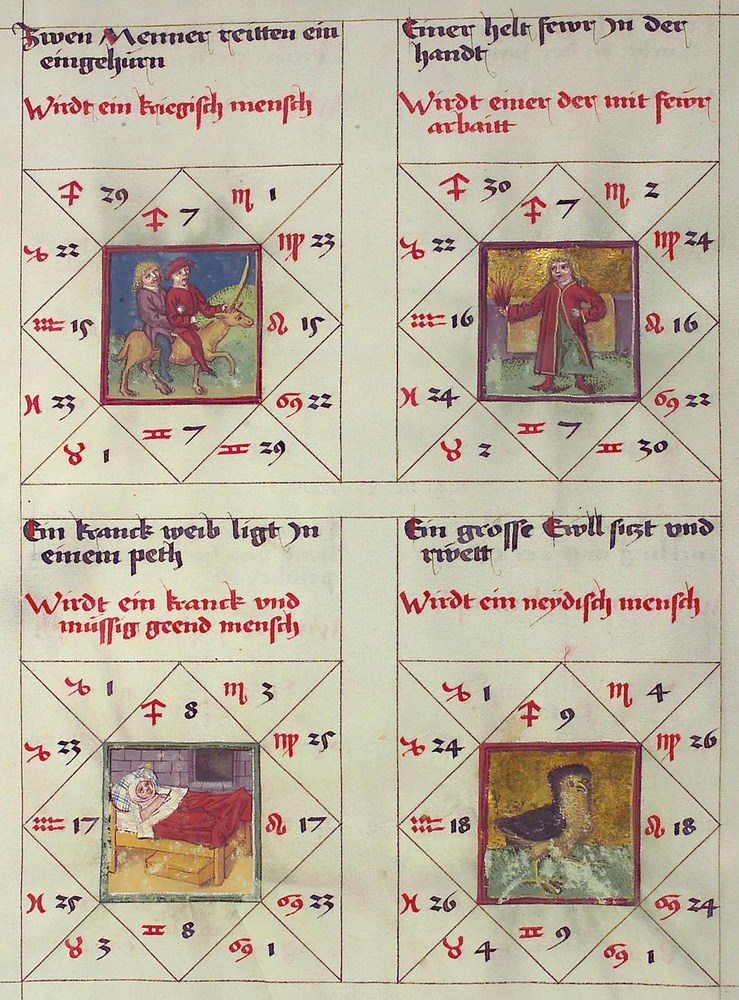 Zwen Menner reitten ein
eingehürn
Wirdt ein kriegisch mensch
♐ 29 ♏ 1
♐ 7
♑ 22 ♍ 23
♒ 15 ♌ 15
♓ 23 ♋ 22
♊ 7
♉ 1 ♊ 29
Einer helt fewr Jn der
handt
Wirdt einer der mit fewr
arbaitt
♐ 30 ♏ 2
♐ 7
♑ 22 ♍ 24
♒ 16 ♌ 16
♓ 24 ♋ 22
♊ 7
♉ 2 ♊ 30
Ein kranck weib ligt Jn
einem peth
Wirdt ein kranck vnd
müssig geend mensch
♑ 1 ♏ 3
♐ 8
♑ 23 ♍ 25
♒ 17 ♌ 17
♓ 25 ♋ 23
♊ 8
♉ 3 ♋ 1
Ein grosse Ewll siczt vnd
rwett
Wirdt ein neydisch mensch
♑ 1 ♏ 4
♐ 9
♑ 24 ♍ 26
♒ 18 ♌ 18
♓ 26 ♋ 24
♊ 9
♉ 4 ♋ 1